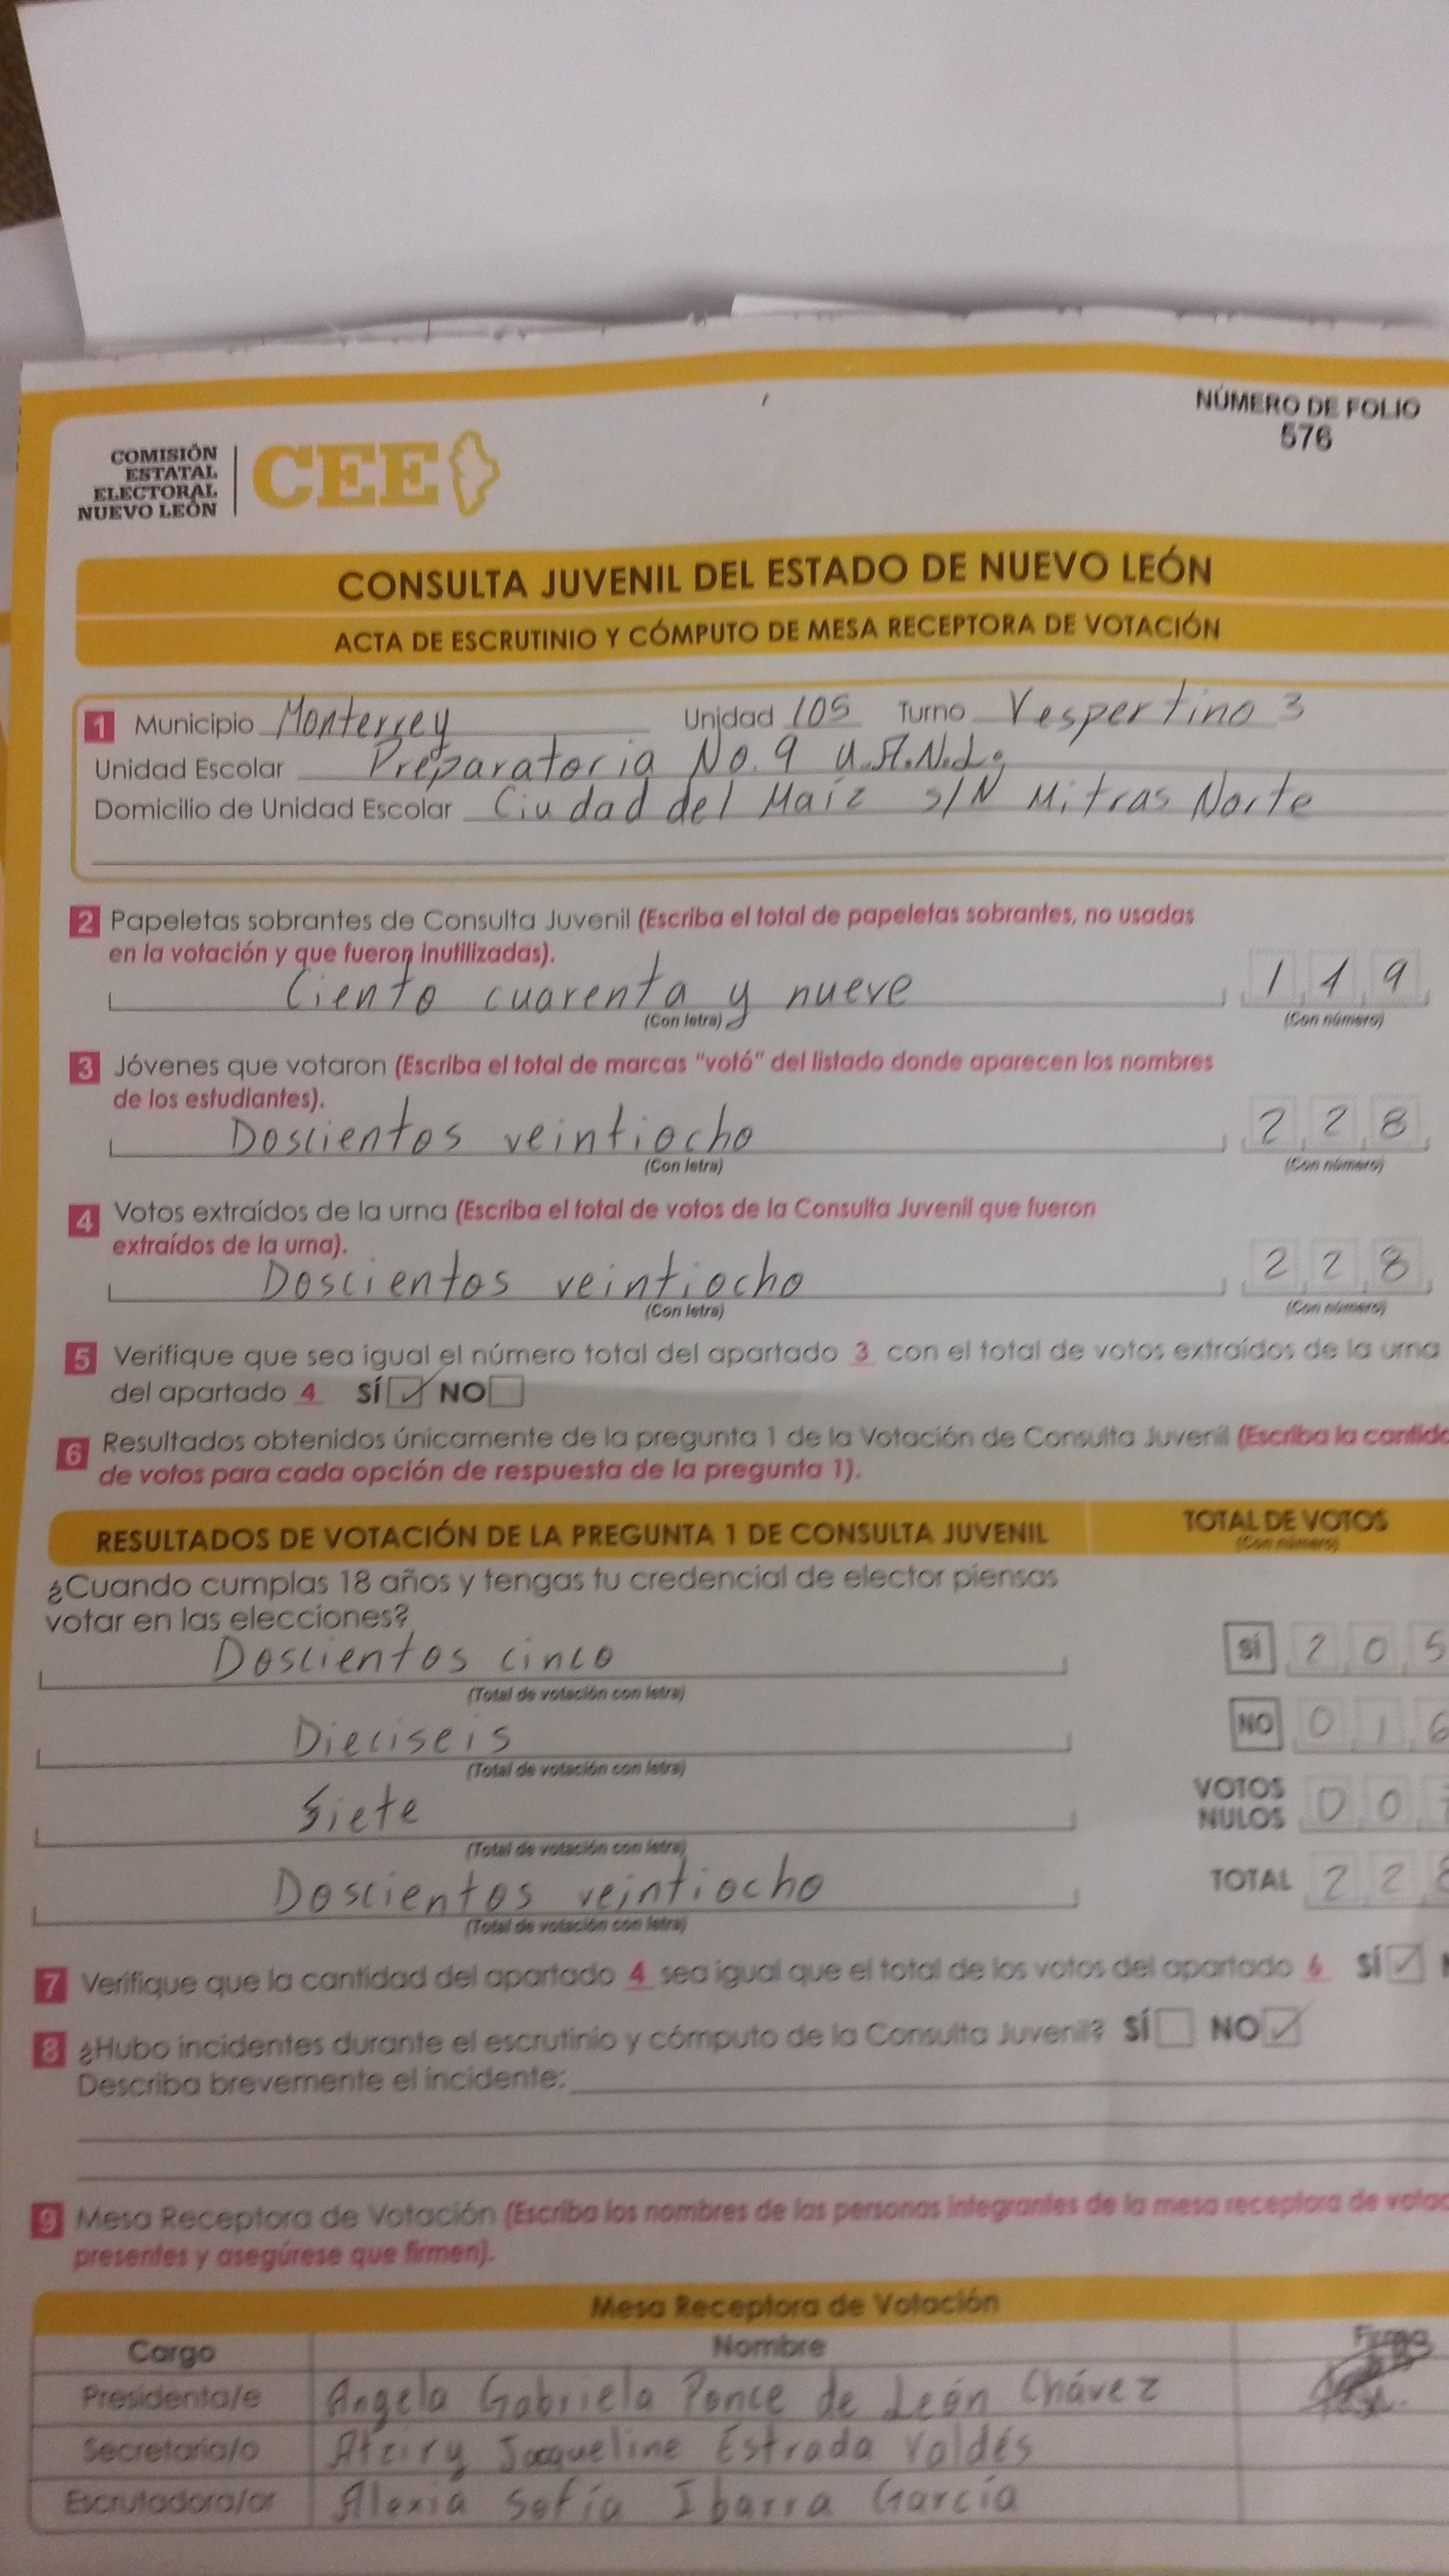 NÚMERO DE FOLIO
576
COMISIÓN
ESTATAL
ELECTORAL
NUEVO LEÓN
CEE
CONSULTA JUVENIL DEL ESTADO DE NUEVO LEÓN
ACTA DE ESCRUTINIO Y CÓMPUTO DE MESA RECEPTORA DE VOTACIÓN
1 Municipio Monterrey Unidad 105 Turno Vespertino 3
Unidad Escolar Preparatoria No. 9 U.A.N.L.
Domicilio de Unidad Escolar Ciudad del Maíz s/N Mitras Norte
2 Papeletas sobrantes de Consulta Juvenil (Escriba el total de papeletas sobrantes, no usadas
en la votación y que fueron inutilizadas).
Ciento cuarenta y nueve 1 4 9
(Con letra) (Con número)
3 Jóvenes que votaron (Escriba el total de marcas "votó" del listado donde aparecen los nombres
de los estudiantes).
Doscientos veintiocho 2 2 8
(Con letra) (Con número)
4 Votos extraídos de la urna (Escriba el total de votos de la Consulta Juvenil que fueron
extraídos de la urna).
Doscientos veintiocho 2 2 8
(Con letra) (Con número)
5 Verifique que sea igual el número total del apartado 3 con el total de votos extraídos de la urna
del apartado 4 SÍ NO
6 Resultados obtenidos únicamente de la pregunta 1 de la Votación de Consulta Juvenil (Escriba la cantida
de votos para cada opción de respuesta de la pregunta 1).
RESULTADOS DE VOTACIÓN DE LA PREGUNTA 1 DE CONSULTA JUVENIL TOTAL DE VOTOS
(Con número)
¿Cuando cumplas 18 años y tengas tu credencial de elector piensas
votar en las elecciones?
Doscientos cinco SÍ 2 0 5
(Total de votación con letra)
Dieciseis NO 0 1 6
(Total de votación con letra)
Siete VOTOS NULOS 0 0
(Total de votación con letra)
Doscientos veintiocho TOTAL 2 2 8
(Total de votación con letra)
7 Verifique que la cantidad del apartado 4 sea igual que el total de los votos del apartado 6 SÍ
8 ¿Hubo incidentes durante el escrutinio y cómputo de la Consulta Juvenil? SÍ NO
Describa brevemente el incidente:
9 Mesa Receptora de Votación (Escriba los nombres de las personas integrantes de la mesa receptora de votac
presentes y asegúrese que firmen).
Mesa Receptora de Votación
Cargo Nombre Firma
Presidenta/e Angela Gabriela Ponce de León Chávez
Secretaria/o Jacqueline Estrada Valdés
Escrutadora/or Alexia Sofía Ibarra García